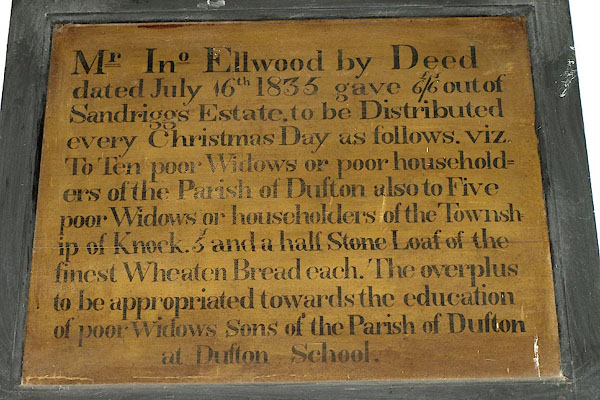 Mr Jno Ellwood by Deed
dated July 16th 1835 gave £6/6 out of
Sandriggs Estate, to be Distributed
every Christmas Day as follows. viz.
To Ten poor Widows or poor household=
ers of the Parish of Dufton also to Five
poor Widows or householders of the Townsh
ip of Knock. and a half Stone Loaf of the
finest Wheaten Bread each. The overplus
to be appropriated towards the education
of poor Widows Sons of the Parish of Dufton
at Dufton School.